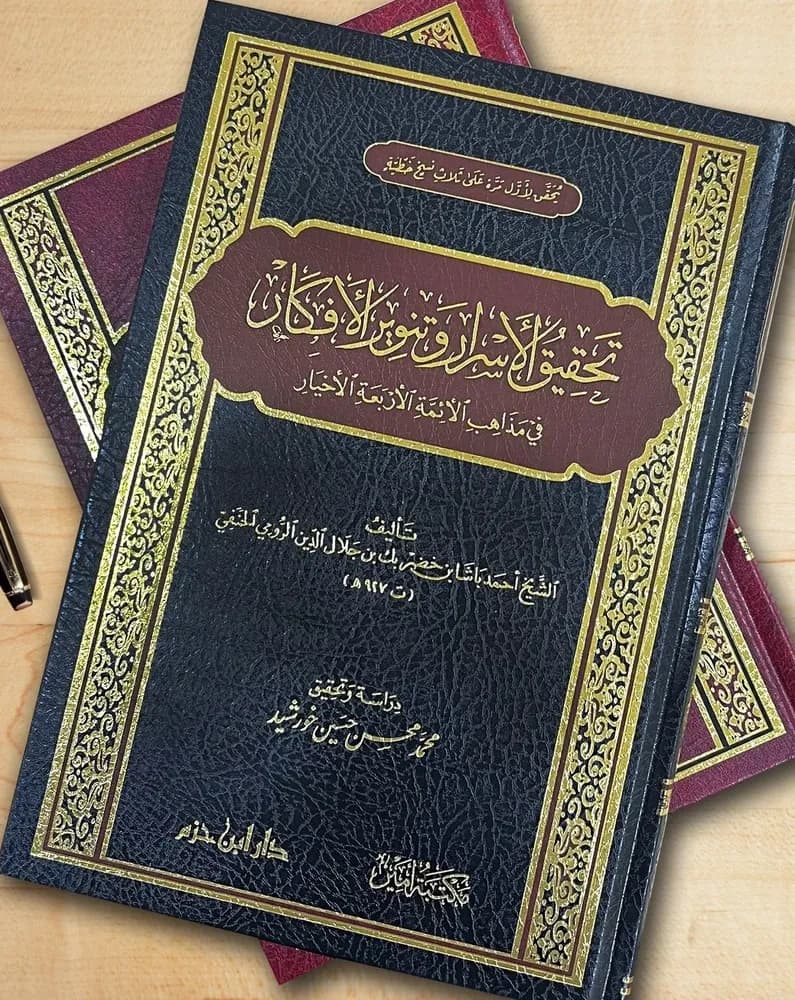 يُحَقَّق لِأَوَّل مَرَّة عَلَى ثَلَاثِ نُسَخٍ خَطِّيَّةٍ
تَحْقِيقُ الأَسْرَارِ وَتَنْوِيرُ الأَفْكَارِ
فِي مَذَاهِبِ الأَئِمَّةِ الأَرْبَعَةِ الأَخْيَارِ
تَأْلِيفُ
الشَّيْخِ أَحْمَد بَاشَا بن خضر بك بن جَلَال الدِّين الرُّومِي الحَنَفِيّ
(ت ٩٢٧ هـ)
دِرَاسَة وَتَحْقِيق
محمد محسن حسين خورشيد
مكتبة أمين
دار ابن حزم